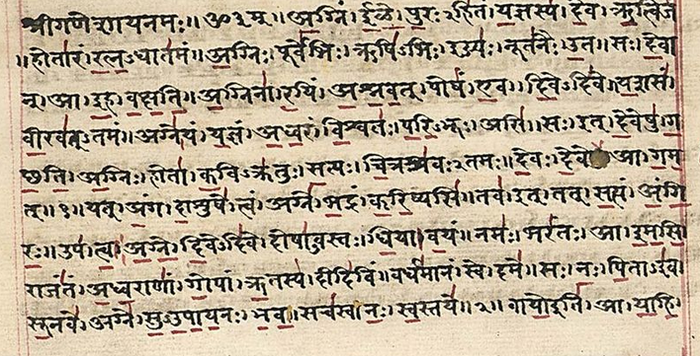 श्रीगणेशायनमः॥ॐ३म्॥अग्निं।ईळे।पुरःऽहितं।यज्ञस्य।देवं।ऋत्विज
॥होतारं।रत्नऽधातमं॥अग्निः।पूर्वेभिः।ऋषिऽभिः।ईड्यः।नूतनैः।उत॥सः।देवा
न्।आ।इह।वक्षति॥अग्निना।रयिं।अश्नवत्।पोषं।एव।दिवेऽदिवे॥यशसं।
वीरवत्ऽतमं॥अग्ने।यं।यज्ञं।अध्वरं।विश्वतः।परिऽभूः।असि॥सः।इत्।देवेषु।ग
च्छति॥अग्निः।होता।कविऽक्रतुः।सत्यः।चित्रश्रवःऽतमः॥देवः।देवे आ।गम
त्॥१॥यत्।अंग।दाशुषे।त्वं।अग्ने।भद्रं।करिष्यसि॥तव।इत्।तत्।सत्यं।अंगि
रः॥उप।त्वा।अग्ने।दिवेऽदिवे।दोषाऽवस्तः।धिया।वयं॥नमः।भरंतः।आ।इमसि॥
राजंतं।अध्वराणां।गोपां।ऋतस्य।दीदिविं॥वर्धमानं।स्वे।दमे॥सः।नः।पिताऽइव।
सूनवे।अग्ने।सुऽउपायनः।भव॥सचस्व।नः।स्वस्तये॥२॥वायो इति।आ।याहि।